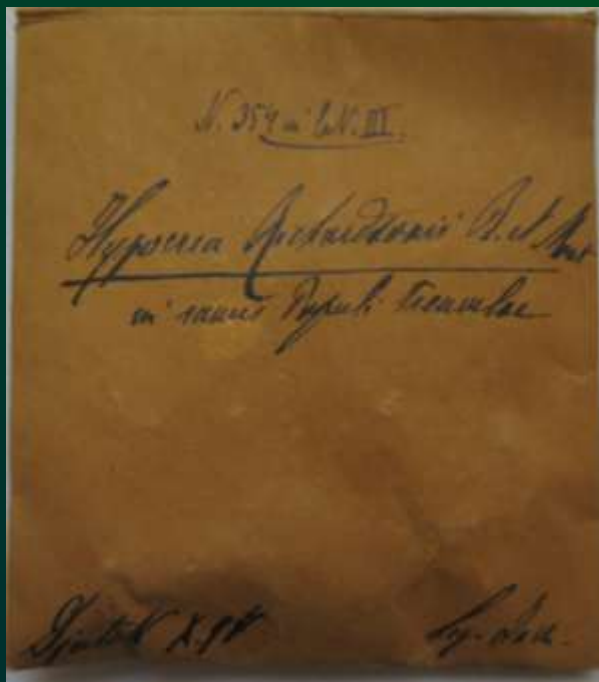 N. 354 in l. N. III.
Hypocrea Richardsonii B. et Mont
in ramis Populi tremulae
X. 97
leg.